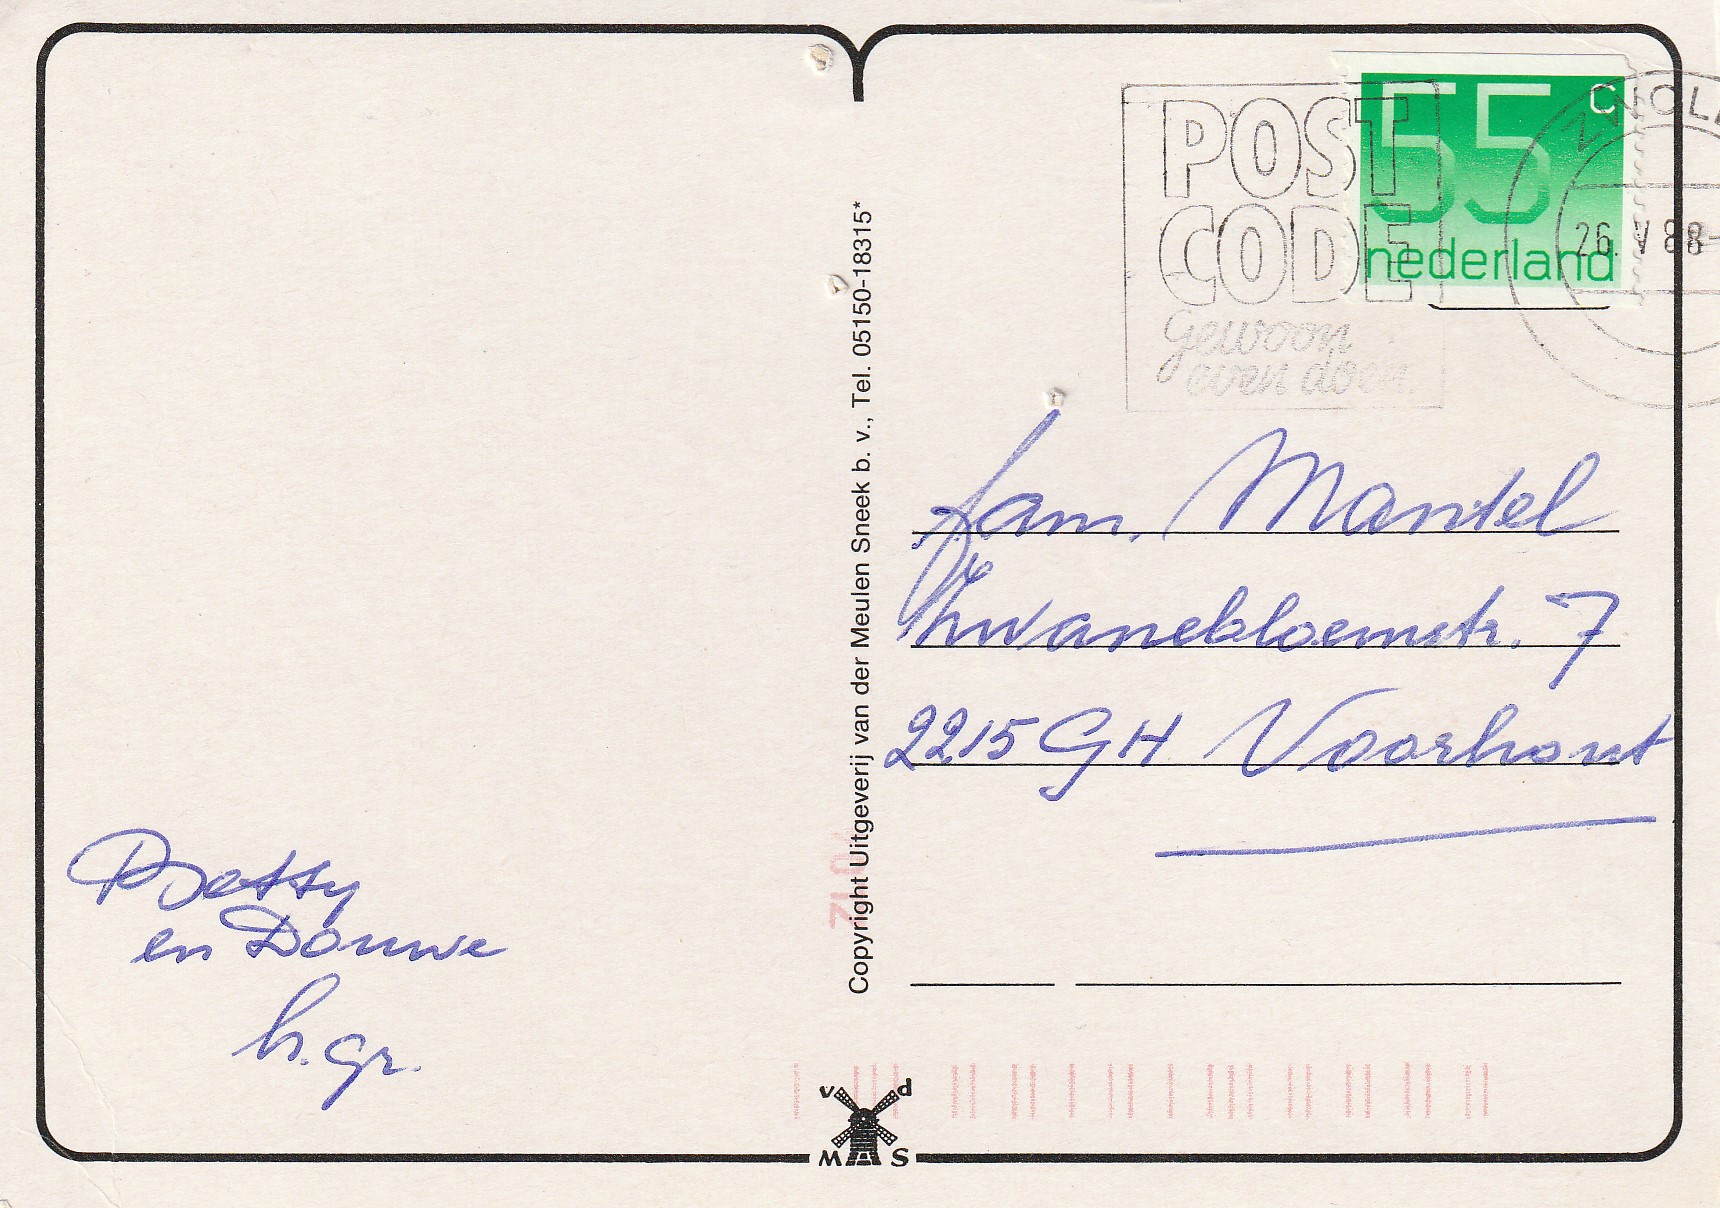 Betty
en Douwe
h. gr.
Copyright Uitgeverij van der Meulen Sneek b. v., Tel. 05150-18315*
POST
CODE
gewoon
even doen.
55 c
nederland
26. V 88-
fam. Mantel
Zwanebloemstr. 7
2215 GH Voorhout
v d
M S